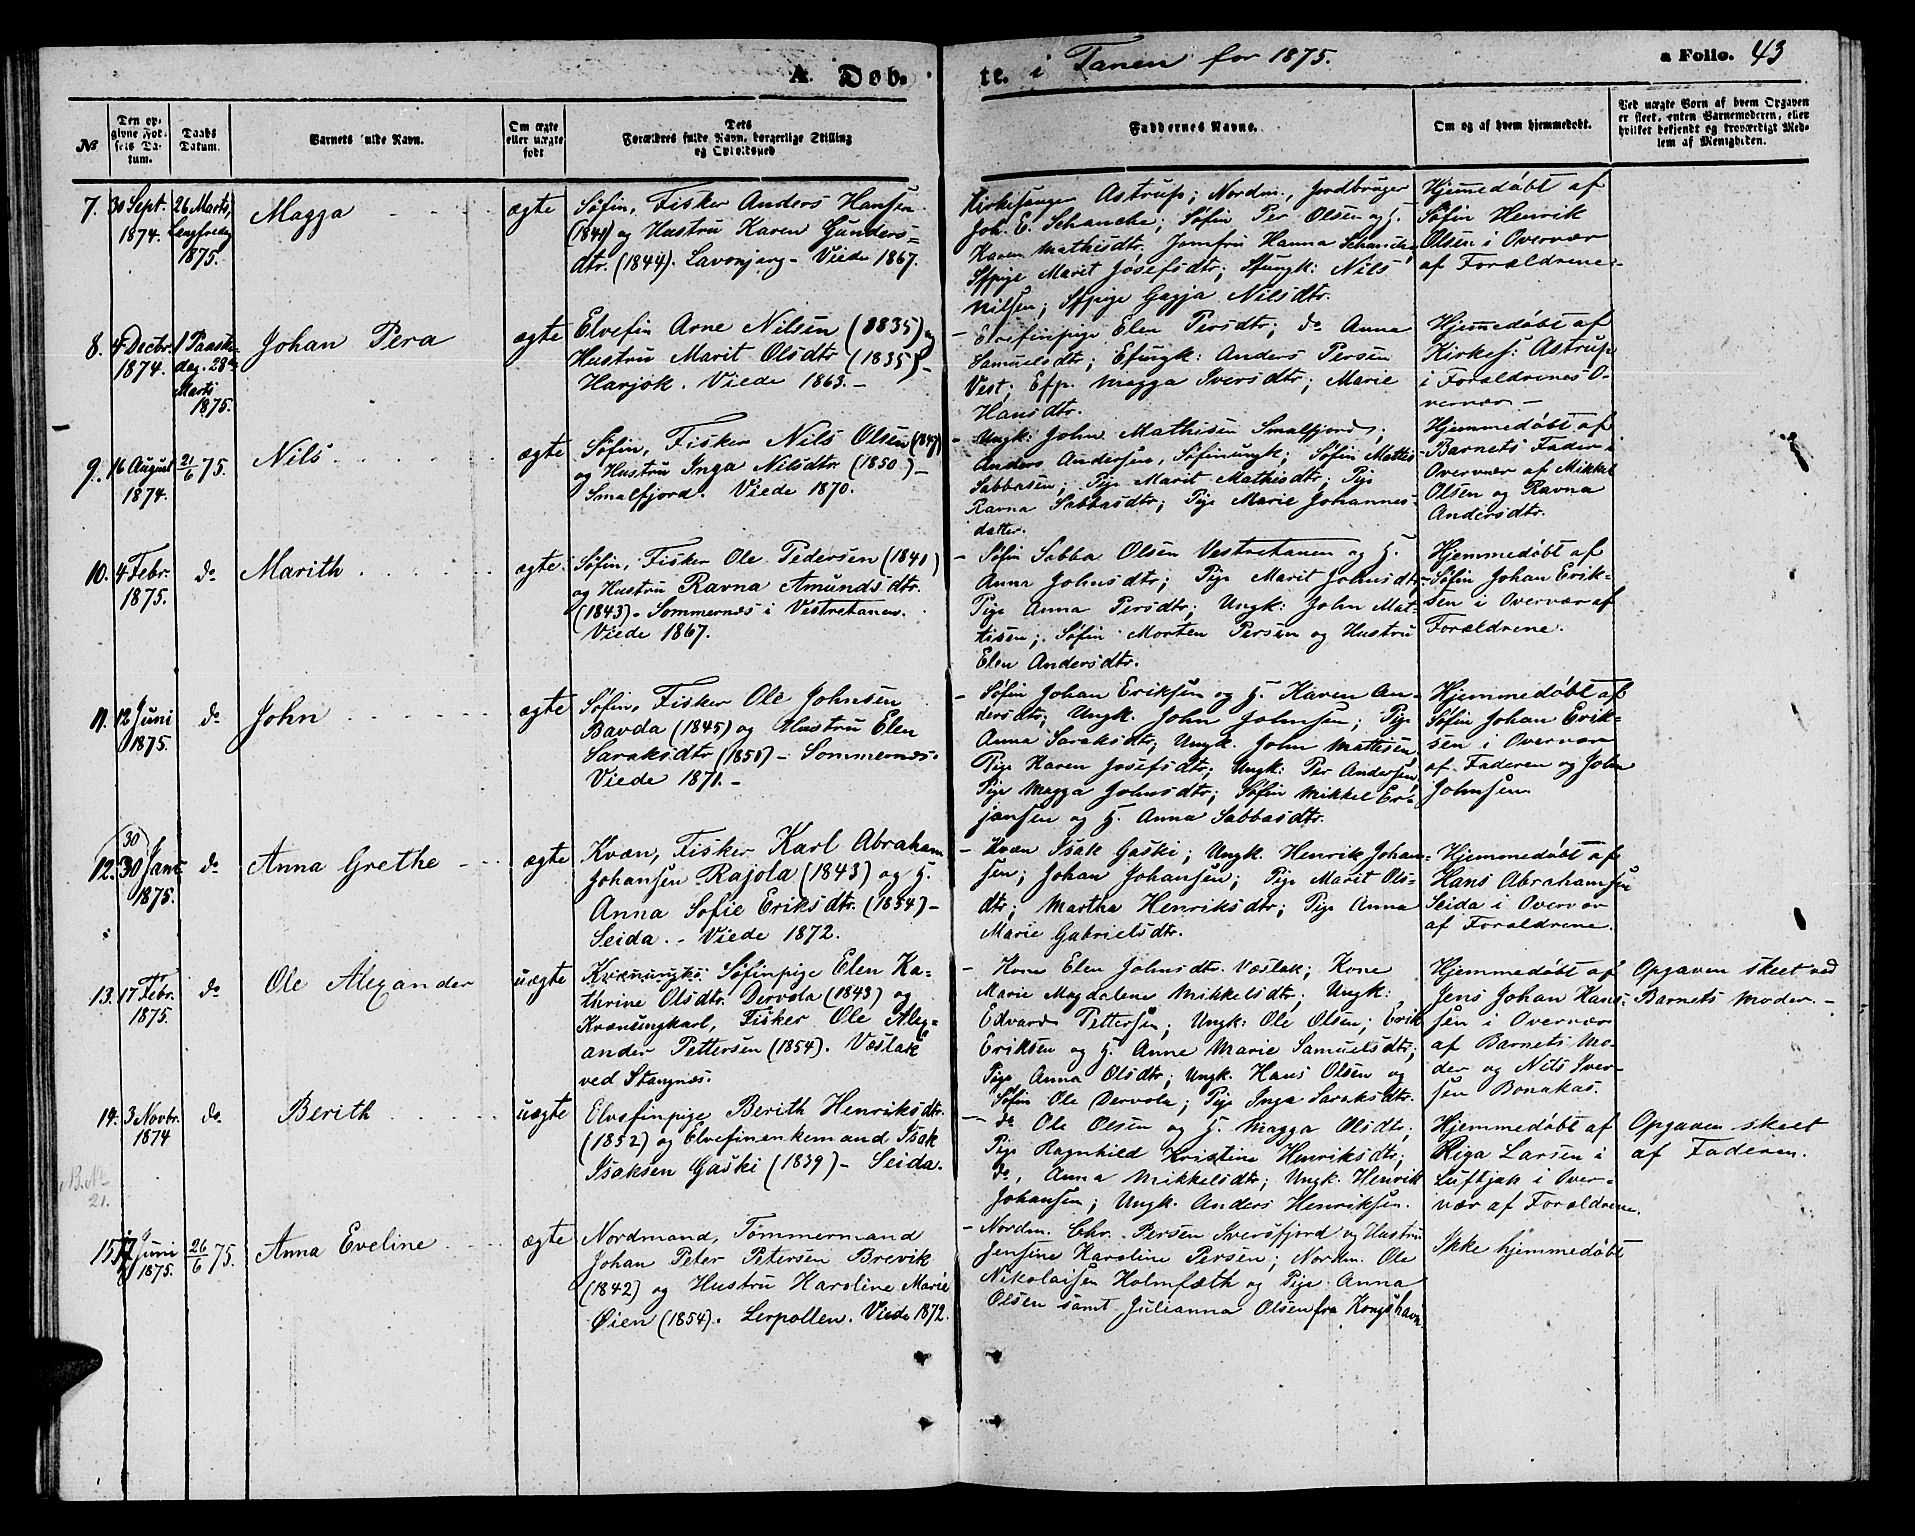 A. Døb. te. i Tanen for 1875. a Folio. 43
No
Den op-
givne Fød-
sels Da-
tum.
Daabs
Datum.
Barnets fulde Navn.
Om ægte
eller uægte
født.
Dets
Forældres fulde Navn, borgerlige Stilling
og Opholdssted
Faddernes Navne.
Om og af hvem hjemmedøbt.
Ved uægte Børn af hvem Opgaven
er skeet, enten Barnemoderen, eller
hvilket bekjendt og troværdigt Med-
lem af Menigheden.
7.
30 Sept.
1874.
26 Marts,
Langfredag
1875.
Magga
ægte
Søfin, Fisker Anders Hansen
(1841) og Hustru Karen Gunders=
dtr. (1844). Lavonjarg - Viede 1867.
Kirkesanger Astrup; Nordm., Jordbruger
Joh. E. Schanche; Søfin Per Olsen og H.
Karen Mathisdtr. Jomfru Hanna Schanche,
Sfpige Marit Josefsdtr; Sfungk: Nils
Nilsen; Sfpige Gagja Nilsdtr.
Hjemmedøbt af
Søfin Henrik
Olsen i Overvær
af Forældrene.
8.
4 Decbr.
1874.
1 Paaske-
dag. 28de
Marts
1875.
Johan Pera
ægte
Elvefin Arne Nilsen (1835) og
Hustru Marit Olsdtr (1835) -
Harjok. Viede 1863. -
- Elvefinpige Elen Persdtr; do Anna
Samuelsdtr; Efungk: Anders Persen
Vest; Efp. Magga Iversdtr; Marie
Hansdtr.
Hjemmedøbt af
Kirkes: Astrup
i Forældrenes O-
vervær -
9.
16 August
1874.
21/6 75.
Nils
ægte
Søfin, Fisker Nils Olsen (1847)
og Hustru Inga Nilsdtr (1850) -
Smalfjord. Viede 1870.
- Ungk: John Mathisen Smalfjord;
Anders Andersen, Søfinungk; Søfin Mathis
Sabbasen; Pige Marit Mathisdtr; Pige
Ravna Sabbasdtr; Pige Marie Johannes-
datter.
Hjemmedøbt af
Barnets Fader i
Overvær af Mikkel
Olsen og Ravna
Andersdtr.
10.
4 Febr.
1875.
do
Marith
ægte.
Søfin, Fisker Ole Pedersen (1840)
og Hustru Ravna Amundsdtr.
(1843) - Sommernæs i Vestretanen.
Viede 1867.
- Søfin Sabba Olsen Vestretanen og H.
Anna Johnsdtr; Pige Marit Johnsdtr
Pige Anna Persdtr; Ungk: John Mat-
tisen; Søfin Morten Persen og Hustru
Elen Andersdtr.
Hjemmedøbt af
Søfin Johan Erik-
sen i Overvær af
Forældrene.
11.
12 Juni
1875.
do
John
ægte
Søfin, Fisker Ole Johnsen
Bavda (1845) og Hustru Elen
Saraksdtr (1850) - Sommernæs.
Viede 1871. -
- Søfin Johan Eriksen og H. Karen An-
dersdtr; Ungk. John Johnsen; Pige
Anna Saraksdtr; Ungk. John Mattisen,
Pige Karen Josefsdtr; Ungk: Per Andersen,
Pige Magga Johnsdtr; Søfin Mikkel Er-
jansen og H. Anna Sabbasdtr.
Hjemmedøbt af
Søfin Johan Erik-
sen i Overvær
af Faderen og John
Johnsen
12.
30
30 Janr
1875.
do
Anna Grethe
ægte
Kvæn, Fisker Karl Abraham
Johansen Rajola (1843) og H.
Anna Sofie Eriksdtr. (1854) -
Seida. - Viede 1872.
- Kvæn Isak Gaski; Ungk. Henrik Johan-
sen; Johan Johansen; Pige Marit Ols-
dtr; Martha Henriksdtr; Pige Anna
Marie Gabrielsdtr.
Hjemmedøbt af
Hans Abrahamsen
Seida i Overvær
af Forældrene.
13.
17 Febr.
1875.
do
Ole Alexander
uægte
Søfinpige Elen Ka-
thrine Olsdtr. Dervola (1843) og
Kvænungkarl, Fisker Ole Alex-
ander Pettersen (1854). Væslak
ved Stangnæs.
- Kone Elen Johnsdtr. Væslak; Kone
Marie Magdalene Mikkelsdtr; Ungk:
Edvard Pettersen; Ungk: Ole Olsen; Erik
Eriksen og H. Anne Marie Samuelsdtr;
Pige Anna Olsdtr; Ungk. Hans Olsen og
Søfin Ole Dervola; Pige Inga Saraksdtr.
Hjemmedøbt af
Jens Johan Han-
sen i Overvær
af Barnets Mo-
der og Nils Iver-
sen Bonakas.
Opgaven skeet ved
Barnets Moder. -
14.
3 Novbr.
1874
do
Berith
uægte
Elvefinpige Berith Henriksdtr.
(1852) og Elvefinenkemand Isak
Isaksen Gaski (1839) - Seida.
- do Ole Olsen og H. Magga Olsdtr,
Pige Ragnhild Kristine Henriksdtr;
do, Anna Mikkelsdtr; Ungk. Henrik
Johansen; Ungk. Anders Henriksen.
Hjemmedøbt af
Riga Larsen i
Luftjok i Over-
vær af Forældrene.
Opgaven skeet
af Faderen.
N.B. No
21.
15.
17 Juni
1875.
26/6 75.
Anna Eveline
ægte
Nordmand, Tømmermand
Johan Peter Petersen Brevik
(1842) og Hustru Karoline Marie
Øien (1854). Lerpollen. Viede 1872.
- Nordm. Chr. Persen Iversfjord og Hustru
Jensine Karoline Persen; Nordm. Ole
Nikolaisen Holmfæth og Pige Anna
Olsen samt Julianna Olsen fra Kongshavn
Ikke hjemmedøbt